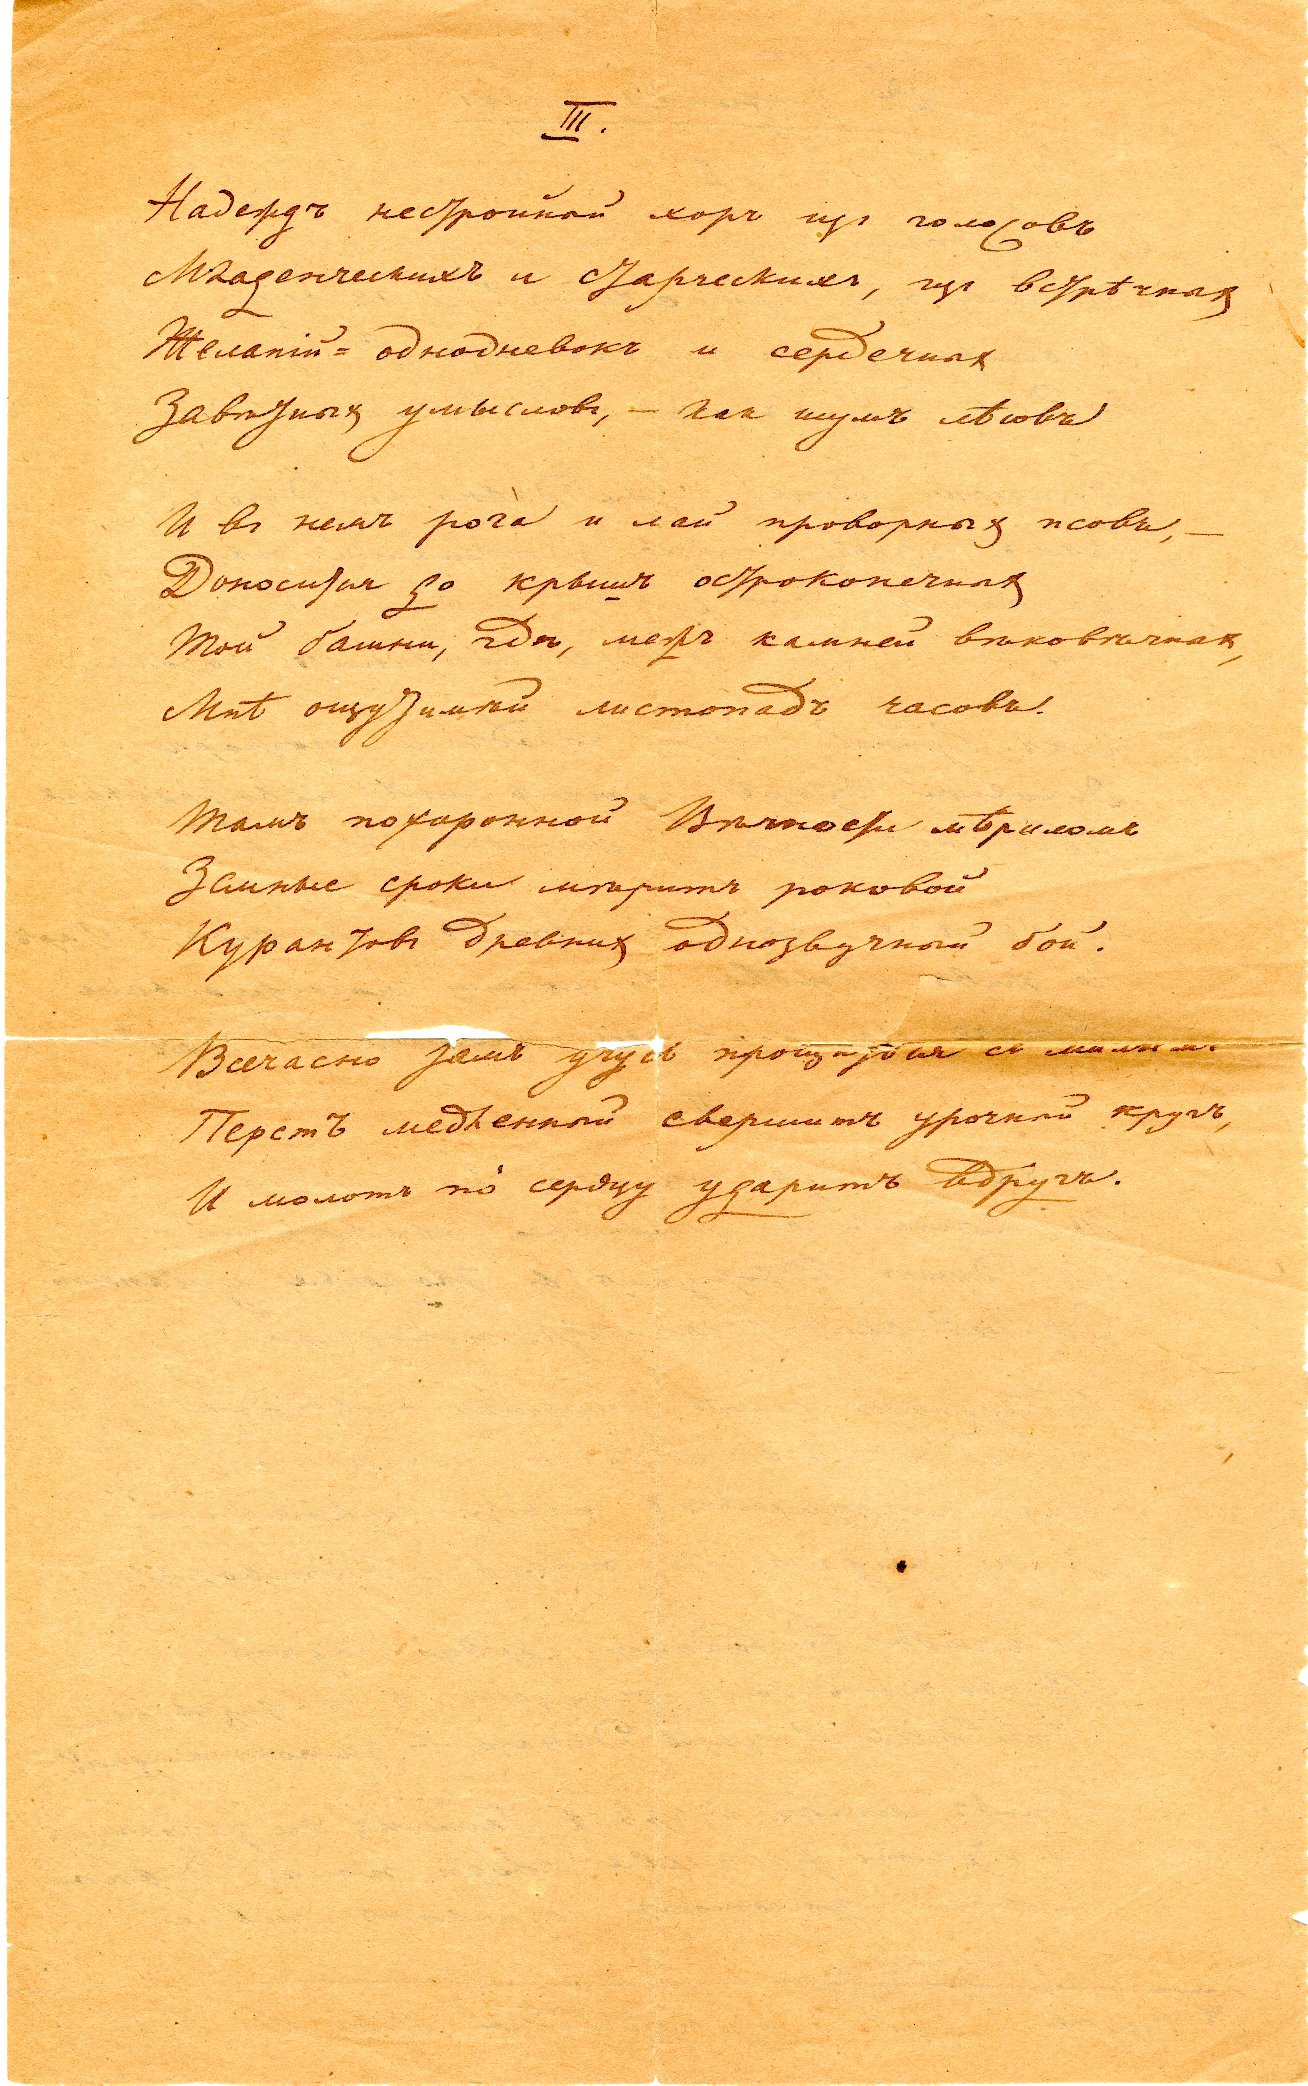 III.
Надеждъ нестройный хоръ изъ голосовъ
Младенческихъ и старческихъ, изъ встрѣчныхъ
Желаній-однодневокъ и сердечныхъ
Завѣтныхъ умысловъ, – как шумъ лѣсовъ
И въ немъ рога и лай проворныхъ псовъ, –
Доносится до крышъ остроконечныхъ
Той башни, гдѣ, межъ камней вѣковѣчныхъ,
Мнѣ ощутимый листопадъ часовъ.
Тамъ похоронной Вѣчности мѣриломъ
Земные сроки мѣритъ роковой
Курантовъ древнихъ однозвучный бой.
Всечасно тамъ учусь прощаться съ милымъ
Перстъ медленный свершитъ урочный кругъ,
И молотъ по сердцу ударитъ вдругъ.